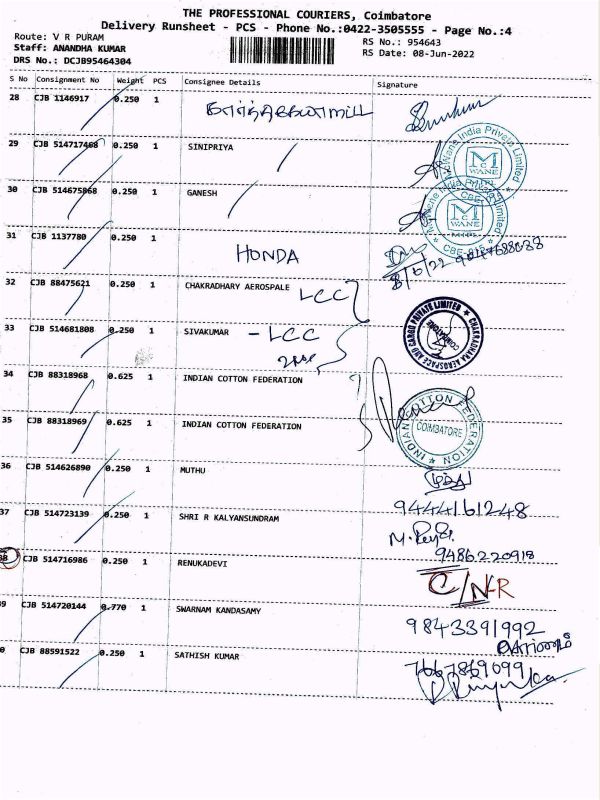 THE PROFESSIONAL COURIERS, Coimbatore
Delivery Runsheet - PCS - Phone No.:0422-3505555 - Page No.:4
Route: V R PURAM
Staff: ANANDHA KUMAR
DRS No.: DCJB95464304
RS No.: 954643
RS Date: 08-Jun-2022
S No Consignment No Weight PCS Consignee Details Signature
28 CJB 1146917 0.250 1
29 CJB 514717468 0.250 1 SINIPRIYA
30 CJB 514675868 0.250 1 GANESH
31 CJB 1137780 0.250 1 HONDA
32 CJB 88475621 0.250 1 CHAKRADHARY AEROSPALE LCC
33 CJB 514681808 0.250 1 SIVAKUMAR - LCC
34 CJB 88318968 0.625 1 INDIAN COTTON FEDERATION
35 CJB 88318969 0.625 1 INDIAN COTTON FEDERATION
INDIAN COTTON FEDERATION
COIMBATORE
36 CJB 514626890 0.250 1 MUTHU
9444161248
37 CJB 514723139 0.250 1 SHRI R KALYANSUNDRAM
9486220918
38 CJB 514716986 0.250 1 RENUKADEVI C/N-R
9 CJB 514720144 0.770 1 SWARNAM KANDASAMY 9843391992
0 CJB 88591522 0.250 1 SATHISH KUMAR 7667869099